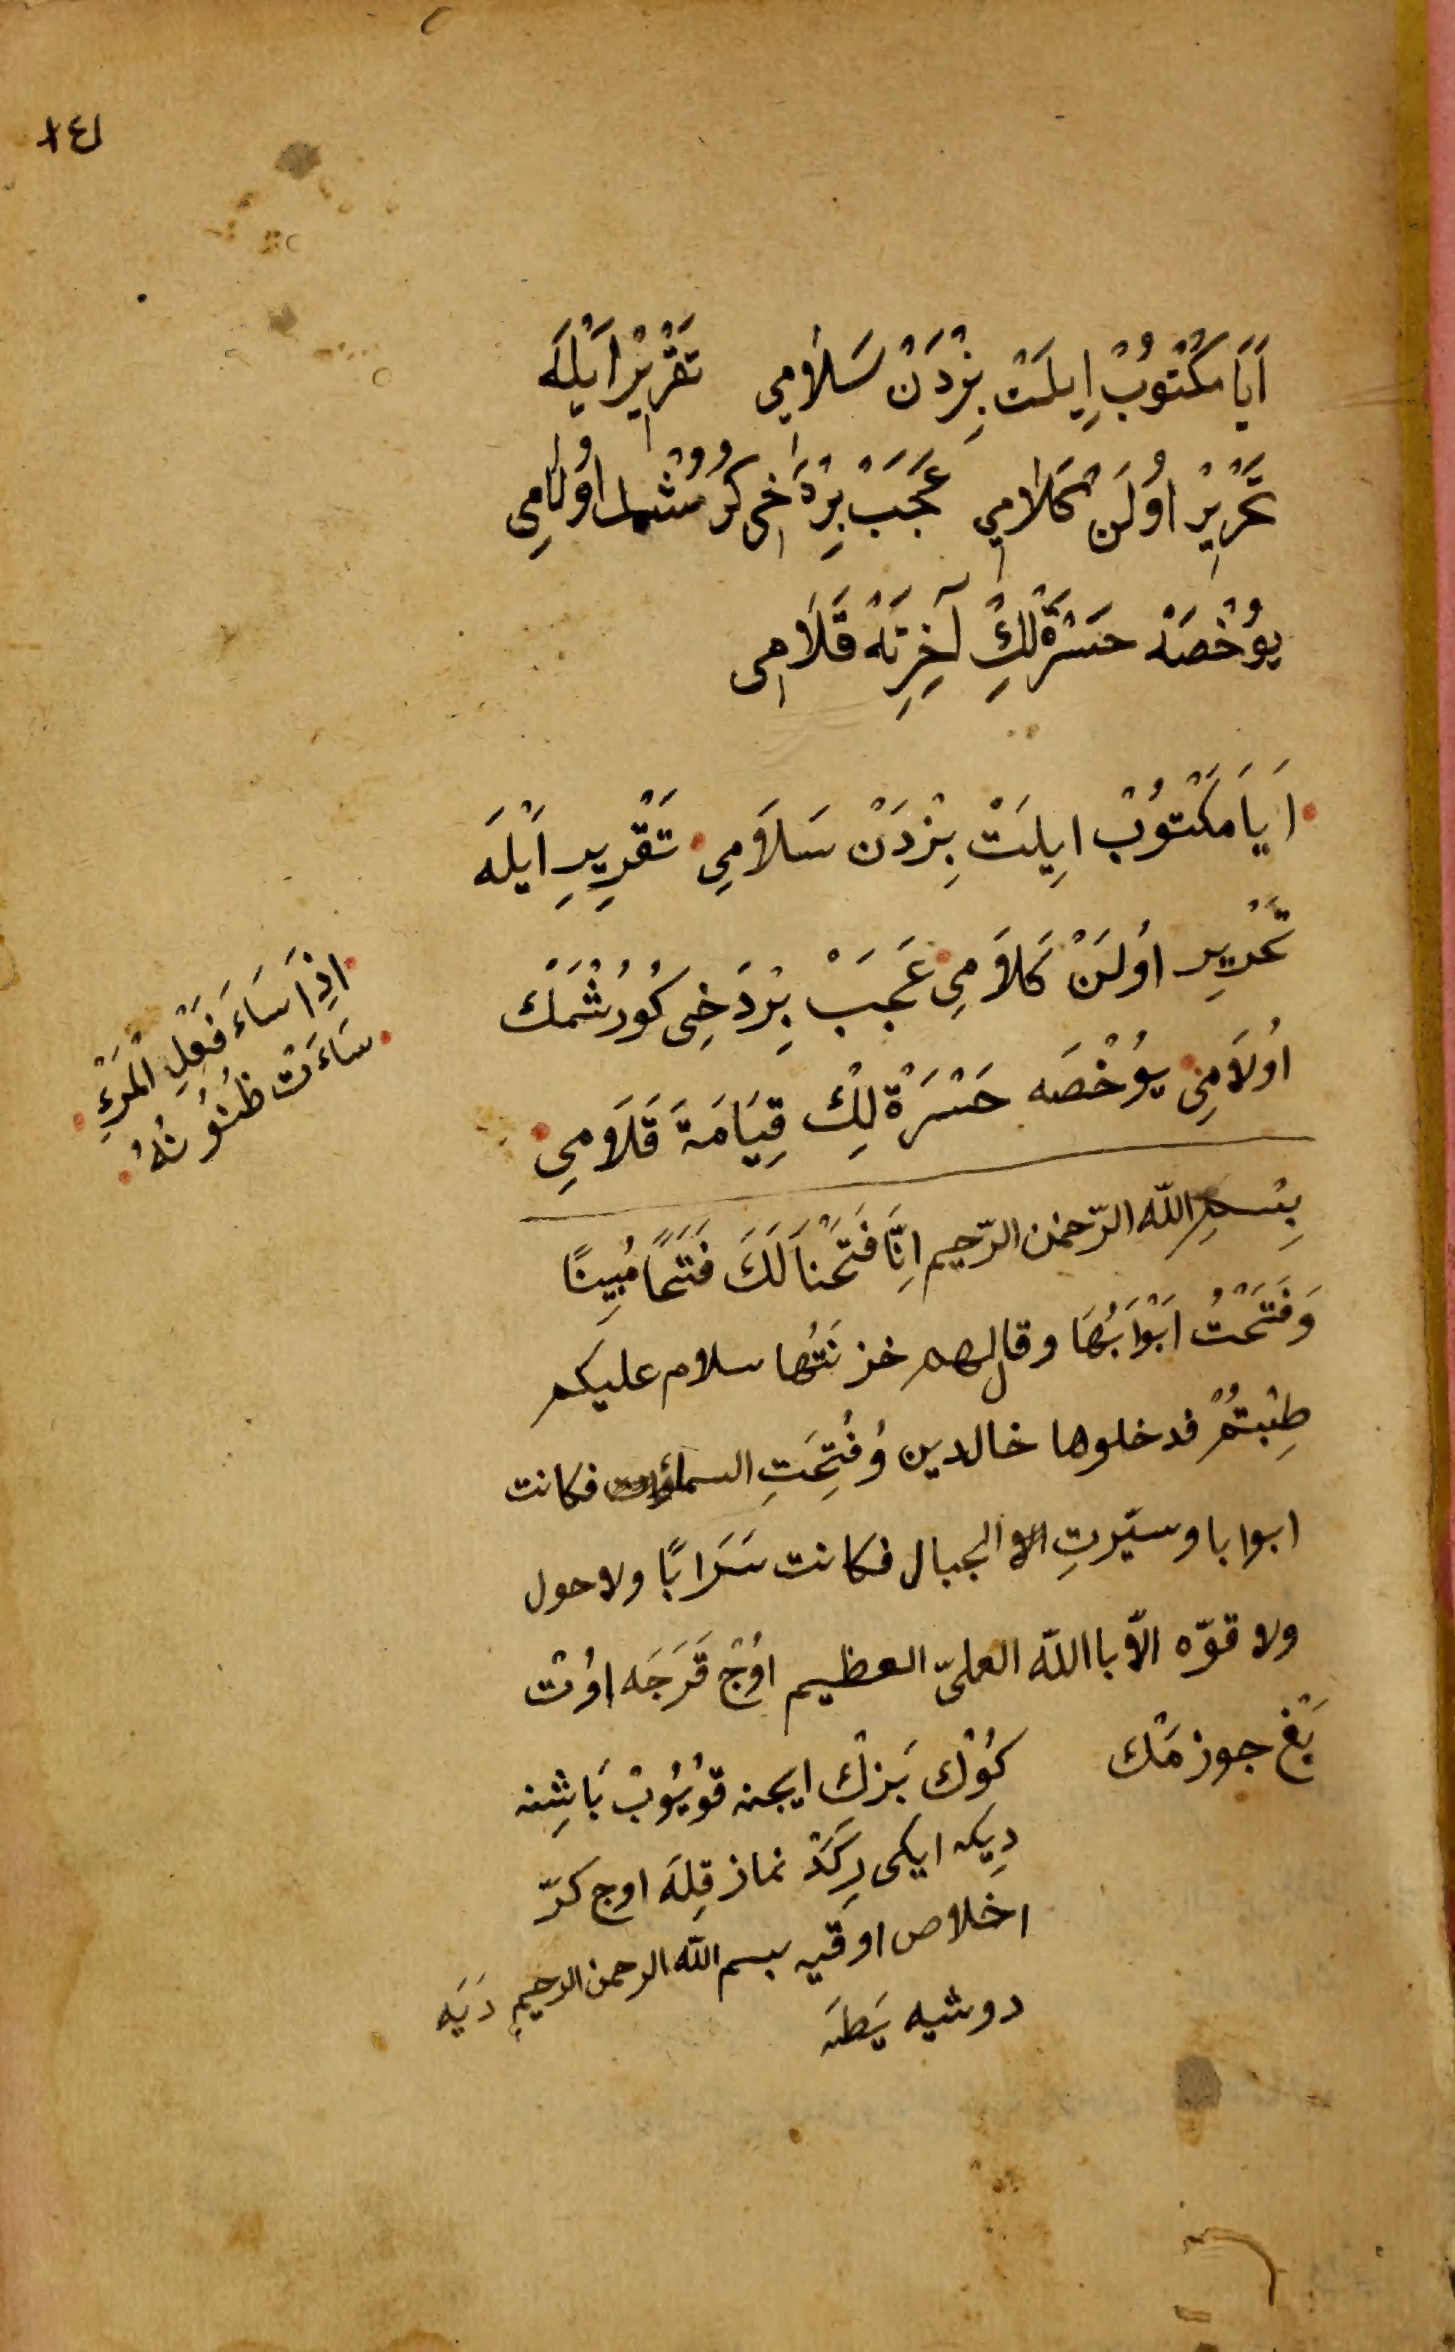 ١٤١
اَيَا مَكْتُوبْ اِيلَتْ بِزْدَنْ سَلَامِي تَقْرِيرْ اَيْلَه
تَحْرِيرْ اُولَنْ كَلَامِي عَجَبْ بِرْدَاخِى كُرُشْمك اُولَامِى
يُوخْصَه حَسْرَةْلِكْ آخِرَتَه قَلَامِى
اَيَا مَكْتُوبْ اِيلَتْ بِزْدَنْ سَلَامِي تَقْرِيرِ اَيْلَه
تَحْرِيرِ اُولَنْ كَلَامِي عَجَبْ بِرْدَخِى كُورُشْمَكْ
اُولَامِي يُوخْصَه حَسْرَةْلِكْ قِيَامَةَ قَلَامِي
اِذَا سَاءَ فَعْلِ الْمَرْءِ
سَاءَتْ ظُنُونُهُ
بِسْمِ اللّه الرّحمن الرّحيم اِنَّا فَتَحْنَا لَكَ فَتَحًا مُبِينًا
وَفَتَحْتُ اَبْوَابُهَا وقال لهم خزنَتُها سلام عليكم
طِبْتُمْ فدخلوها خالدين وُفُتِحَتِ السماؤات فكانت
ابوابا وسيّرتِ الا الجبال فكانت سَرَابًا ولا حول
ولا قوّه الّا باالله العلىّ العظيم اُوجْ قَرَجَه اوُتْ
بَغ جوزمَك كُوْك بَزِكْ ايچنه قُويُوبْ بَاشِنه
دِيكه ايكى رِكَدْ نماز قِلَه اوج كرّ
اخلاص اوقيه بسم الله الرحمن الرحيم دَيَه
دوشيه يَطَه